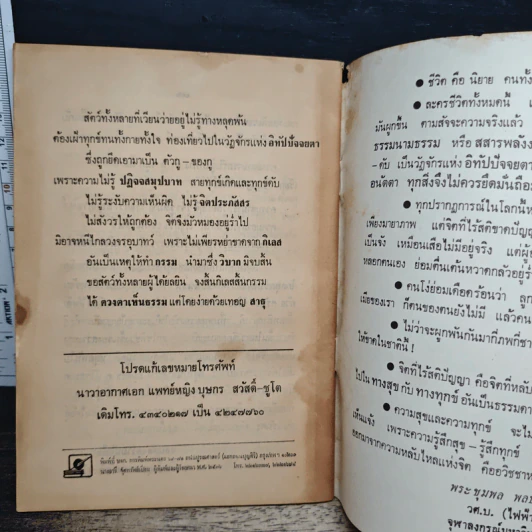 สัตว์ทั้งหลายที่เวียนว่ายอยู่ไม่รู้ทางหลุดพ้น
ต้องเผ้าทุกข์ทนทั้งกายทั้งใจ ท่องเที่ยวไปในวัฏจักรแห่ง อิทัปปัจจยตา
ซึ่งถูกยึดเอามาเป็น ตัวกู - ของกู
เพราะความไม่รู้ ปฏิจจสมุปบาท สายทุกข์เกิดและทุกข์ดับ
ไม่รู้ระงับความเห็นผิด ไม่รู้ จิตประภัสสร
ไม่สังวรให้ถูกต้อง จิตจึงมัวหมองอยู่ร่ำไป
มิอาจหนีไกลวงจรอุบาทว์ เพราะไม่เพียรหย่าขาดจาก กิเลส
อันเป็นเหตุให้ทำ กรรม นำมาซึ่ง วิบาก มิจบสิ้น
ขอสัตว์ทั้งหลายผู้ได้ยลยิน จงสิ้นกิเลสสิ้นกรรม
ได้ ดวงตาเห็นธรรม แต่โดยง่ายด้วยเทอญ สาธุ
โปรดแก้เลขหมายโทรศัพท์
นาวาอากาศเอก แพทย์หญิง บุษกร สวัสดิ์-ชูโต
เดิมโทร. ๔๓๔๐๒๑๗ เป็น ๔๒๔๗๗๖๐
● ชีวิต คือ นิยาย คนทั้ง
● ละครชีวิตทั้งหมดนี้
มันผูกขึ้น ตามสัจจะความจริงแล้ว
ธรรมนามธรรม หรือ สสารพลังง
-ดับ เป็นวัฏจักรแห่ง อิทัปปัจจยตา
อนัตตา ทุกสิ่งจึงไม่ควรยึดมั่นถือ
● ทุกปรากฏการณ์ในโลกนี้
เพียงมายาภาพ แต่จิตที่ไร้สติขาดปัญญา
เป็นจัง เหมือนเสือไม่มีอยู่จริง แต่ผู้
หลอกคนเอง ย่อมตื่นเต้นหวาดกลัวอยู่ร่ำ
● คนโง่ย่อมเดือดร้อนว่า ลูก
เมียของเรา ก็ตนของตนยังไม่มี แล้วคน
● ไม่ว่าจะผูกพันกันมากี่ภพกี่ชา
ให้ขาดในชาตินี้ !
● จิตที่ไร้สติปัญญา คือจิตที่หลับ
ไปใน ทางสุข กับ ทางทุกข์ อันเป็นธรรมดา
● ความสุขและความทุกข์ จะไม่
เห็นแจ้ง เพราะความรู้สึกสุข - รู้สึกทุกข์
ออกมาจากความหลับใหลแห่งจิต คืออวิชชา
พระชุมพล พล
วศ.บ. (ไฟฟ้
จุฬาลงกรณ์มหาวิท